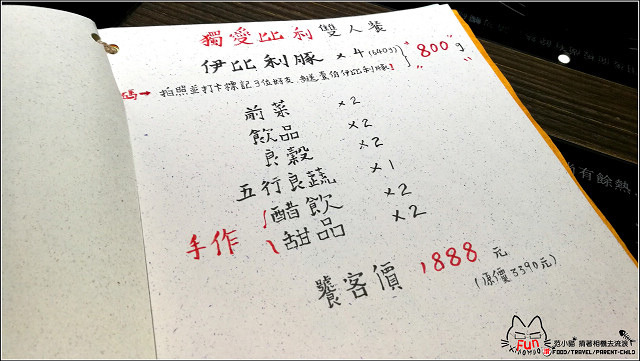 獨愛比利雙人餐
伊比利豚 x4 (640g) "800"g
碼→拍照並打卡標記3位好友 就送壹佰伊比利豚!
前菜 x2
飲品 x2
良穀 x2
五行良蔬 x1
手作 醋飲 x2
甜品 x2
饕客價 1888 元
(原價3390元)
有餘熱
FUN
XIAOMAO
范小貓 揹著相機去流浪
FOOD/TRAVEL/PARENT-CHILD